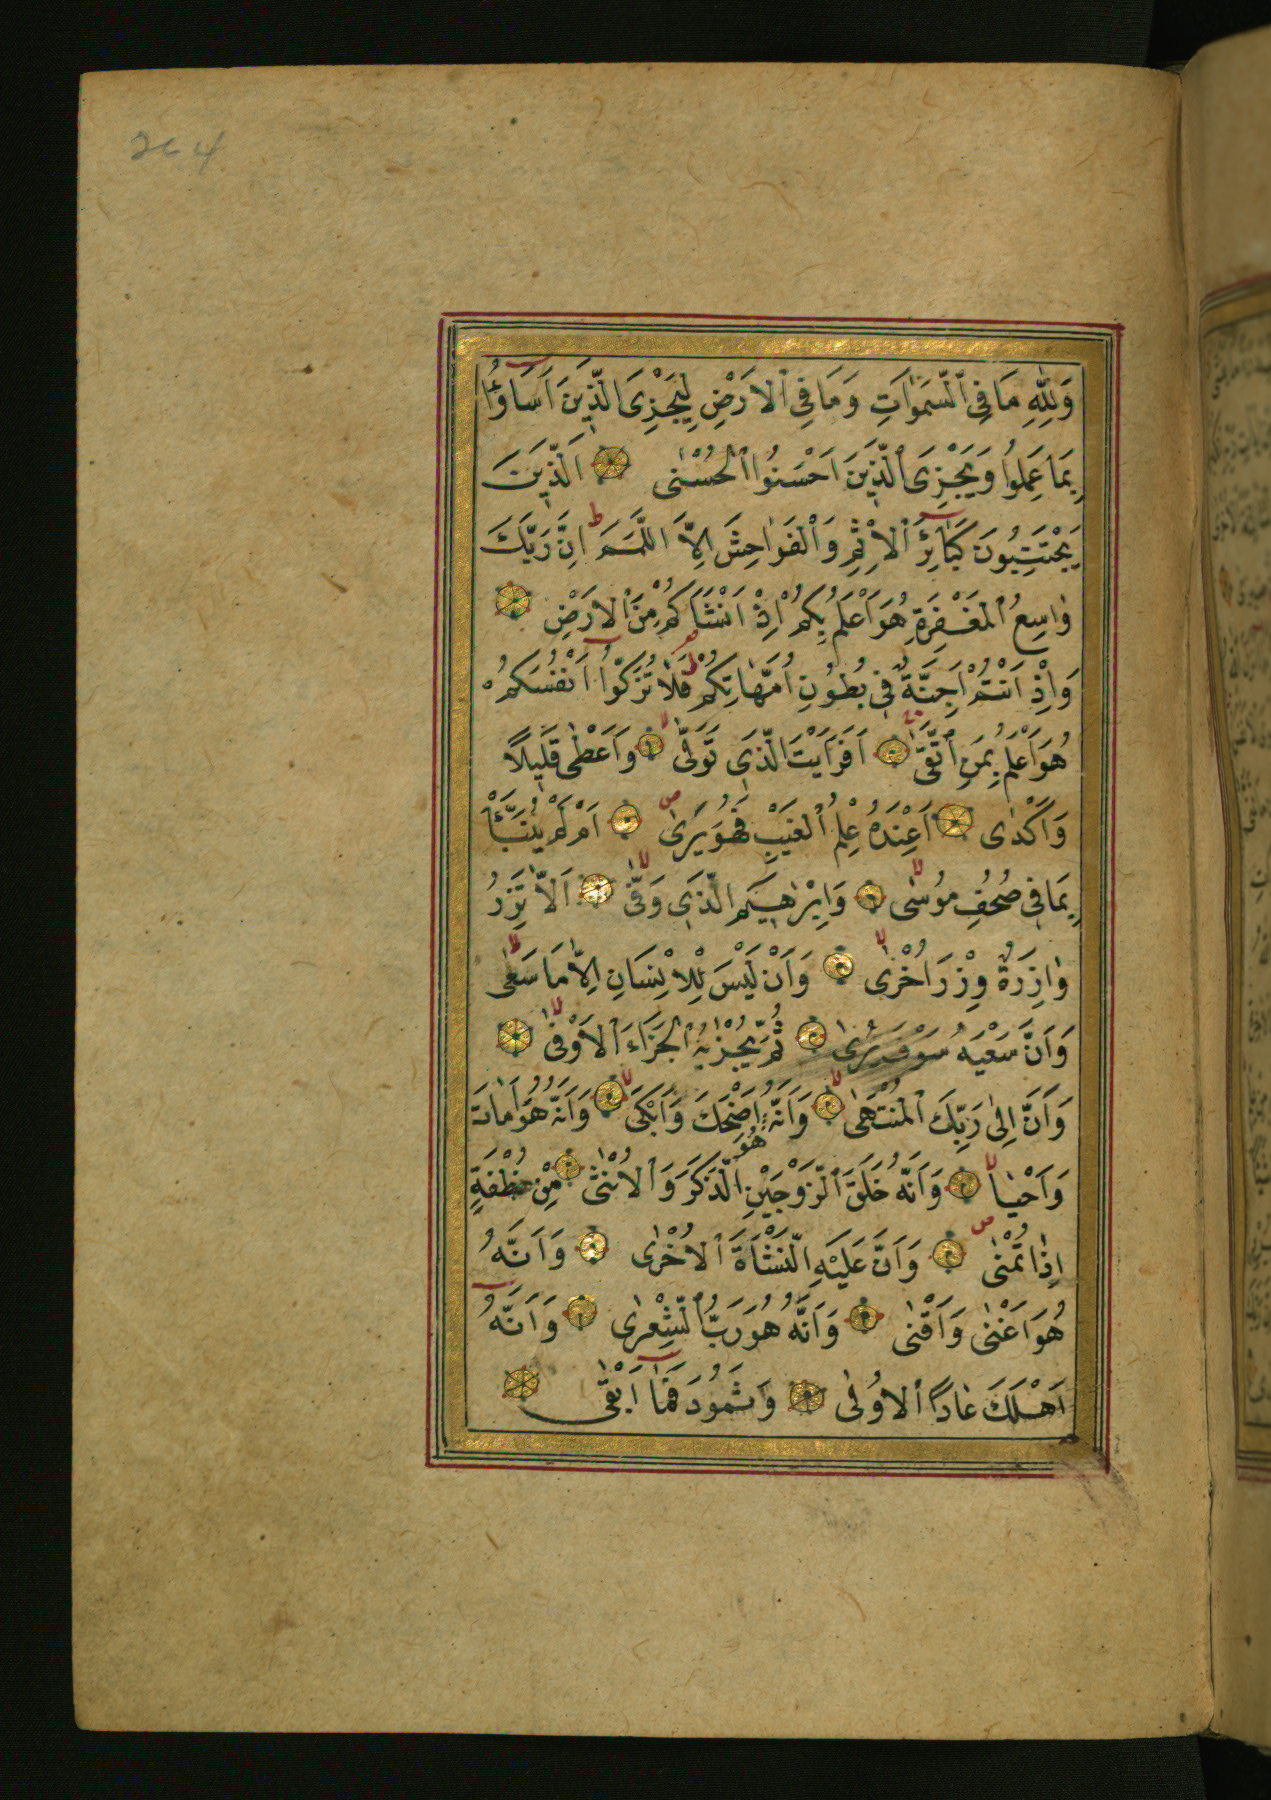 264
وَلِلّٰهِ مَا فِي ٱلسَّمٰوَاتِ وَمَا فِي ٱلْاَرْضِ لِيَجْزِيَ الَّذِينَ اَسَاؤُا
بِمَا عَمِلُوا وَيَجْزِيَ ٱلَّذِينَ اَحْسَنُوا ٱلْحُسْنٰى اَلَّذِينَ
يَجْتَنِبُونَ كَبَائِرَ ٱلْاِثْمِ وَٱلْفَوَاحِشَ اِلَّا اللَّمَمَ ط اِنَّ رَبَّكَ
وٰاسِعُ ٱلْمَغْفِرَةِ هُوَ اَعْلَمُ بِكُمْ اِذْ اَنْشَاَكُمْ مِنَ ٱلْاَرْضِ
وَاِذْ اَنْتُمْ اَجِنَّةٌ فِي بُطُونِ اُمَّهٰاتِكُمْ فَلَا تُزَكُّوا اَنْفُسَكُمْ
هُوَ اَعْلَمُ بِمَنِ ٱتَّقٰى اَفَرَاَيْتَ الَّذِي تَوَلّٰى لا وَاَعْطٰى قَلِيلًا
وَاَكْدٰى اَعِنْدَهُ عِلْمُ ٱلْغَيْبِ فَهُوَ يَرٰى ص اَمْ لَمْ يُنَبَّأْ
بِمَا فِي صُحُفِ مُوسٰى لا وَاِبْرٰهِيمَ الَّذِي وَفّٰى لا اَلَّا تَزِرُ
وٰازِرَةٌ وِزْرَ اُخْرٰى لا وَاَنْ لَيْسَ لِلْاِنْسَانِ اِلَّا مَا سَعٰى لا
وَاَنَّ سَعْيَهُ سَوْفَ يُرٰى ثُمَّ يُجْزٰيهُ ٱلْجَزَاءَ ٱلْاَوْفٰى لا
وَاَنَّ اِلٰى رَبِّكَ ٱلْمُنْتَهٰى لا وَاَنَّهُ هُوَ اَضْحَكَ وَاَبْكٰى لا وَاَنَّهُ هُوَ اَمَاتَ
وَاَحْيَا لا وَاَنَّهُ خَلَقَ ٱلزَّوْجَيْنِ الذَّكَرَ وَٱلْاُنْثٰى مِنْ نُطْفَةٍ
اِذٰا تُمْنٰى ص وَاَنَّ عَلَيْهِ النَّشْاَةَ ٱلْاُخْرٰى وَاَنَّهُ
هُوَ اَغْنٰى وَاَقْنٰى وَاَنَّهُ هُوَ رَبُّ ٱلشِّعْرٰى وَاَنَّهُ
اَهْلَكَ عَادًا ٱلْاُولٰى وَثَمُودَ فَمَا اَبْقٰى